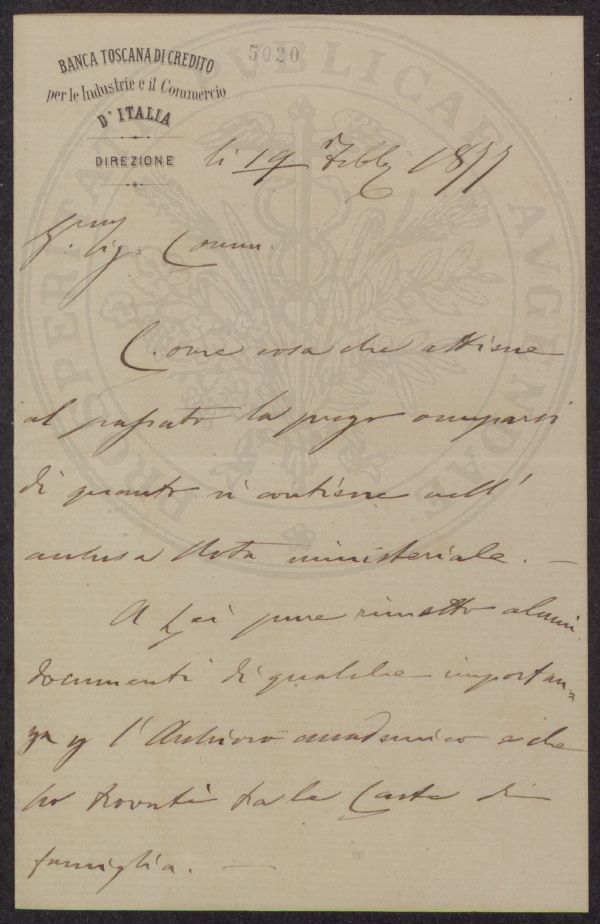 BANCA TOSCANA DI CREDITO
per le Industrie e il Commercio
D'ITALIA
DIREZIONE
5020
PROSPERITATI PVBLICAE AVGENDAE
li 19 Febbr 1877
Sig. Comm.
Come cosa che attiene
al passato la prego occuparsi
di quanto si contiene nell'
acclusa Nota ministeriale. —
A Lei pure rimetto alcuni
documenti di qualche importan=
za p l'Archivio accademico e che
ho trovati tra le Carte di
famiglia. —